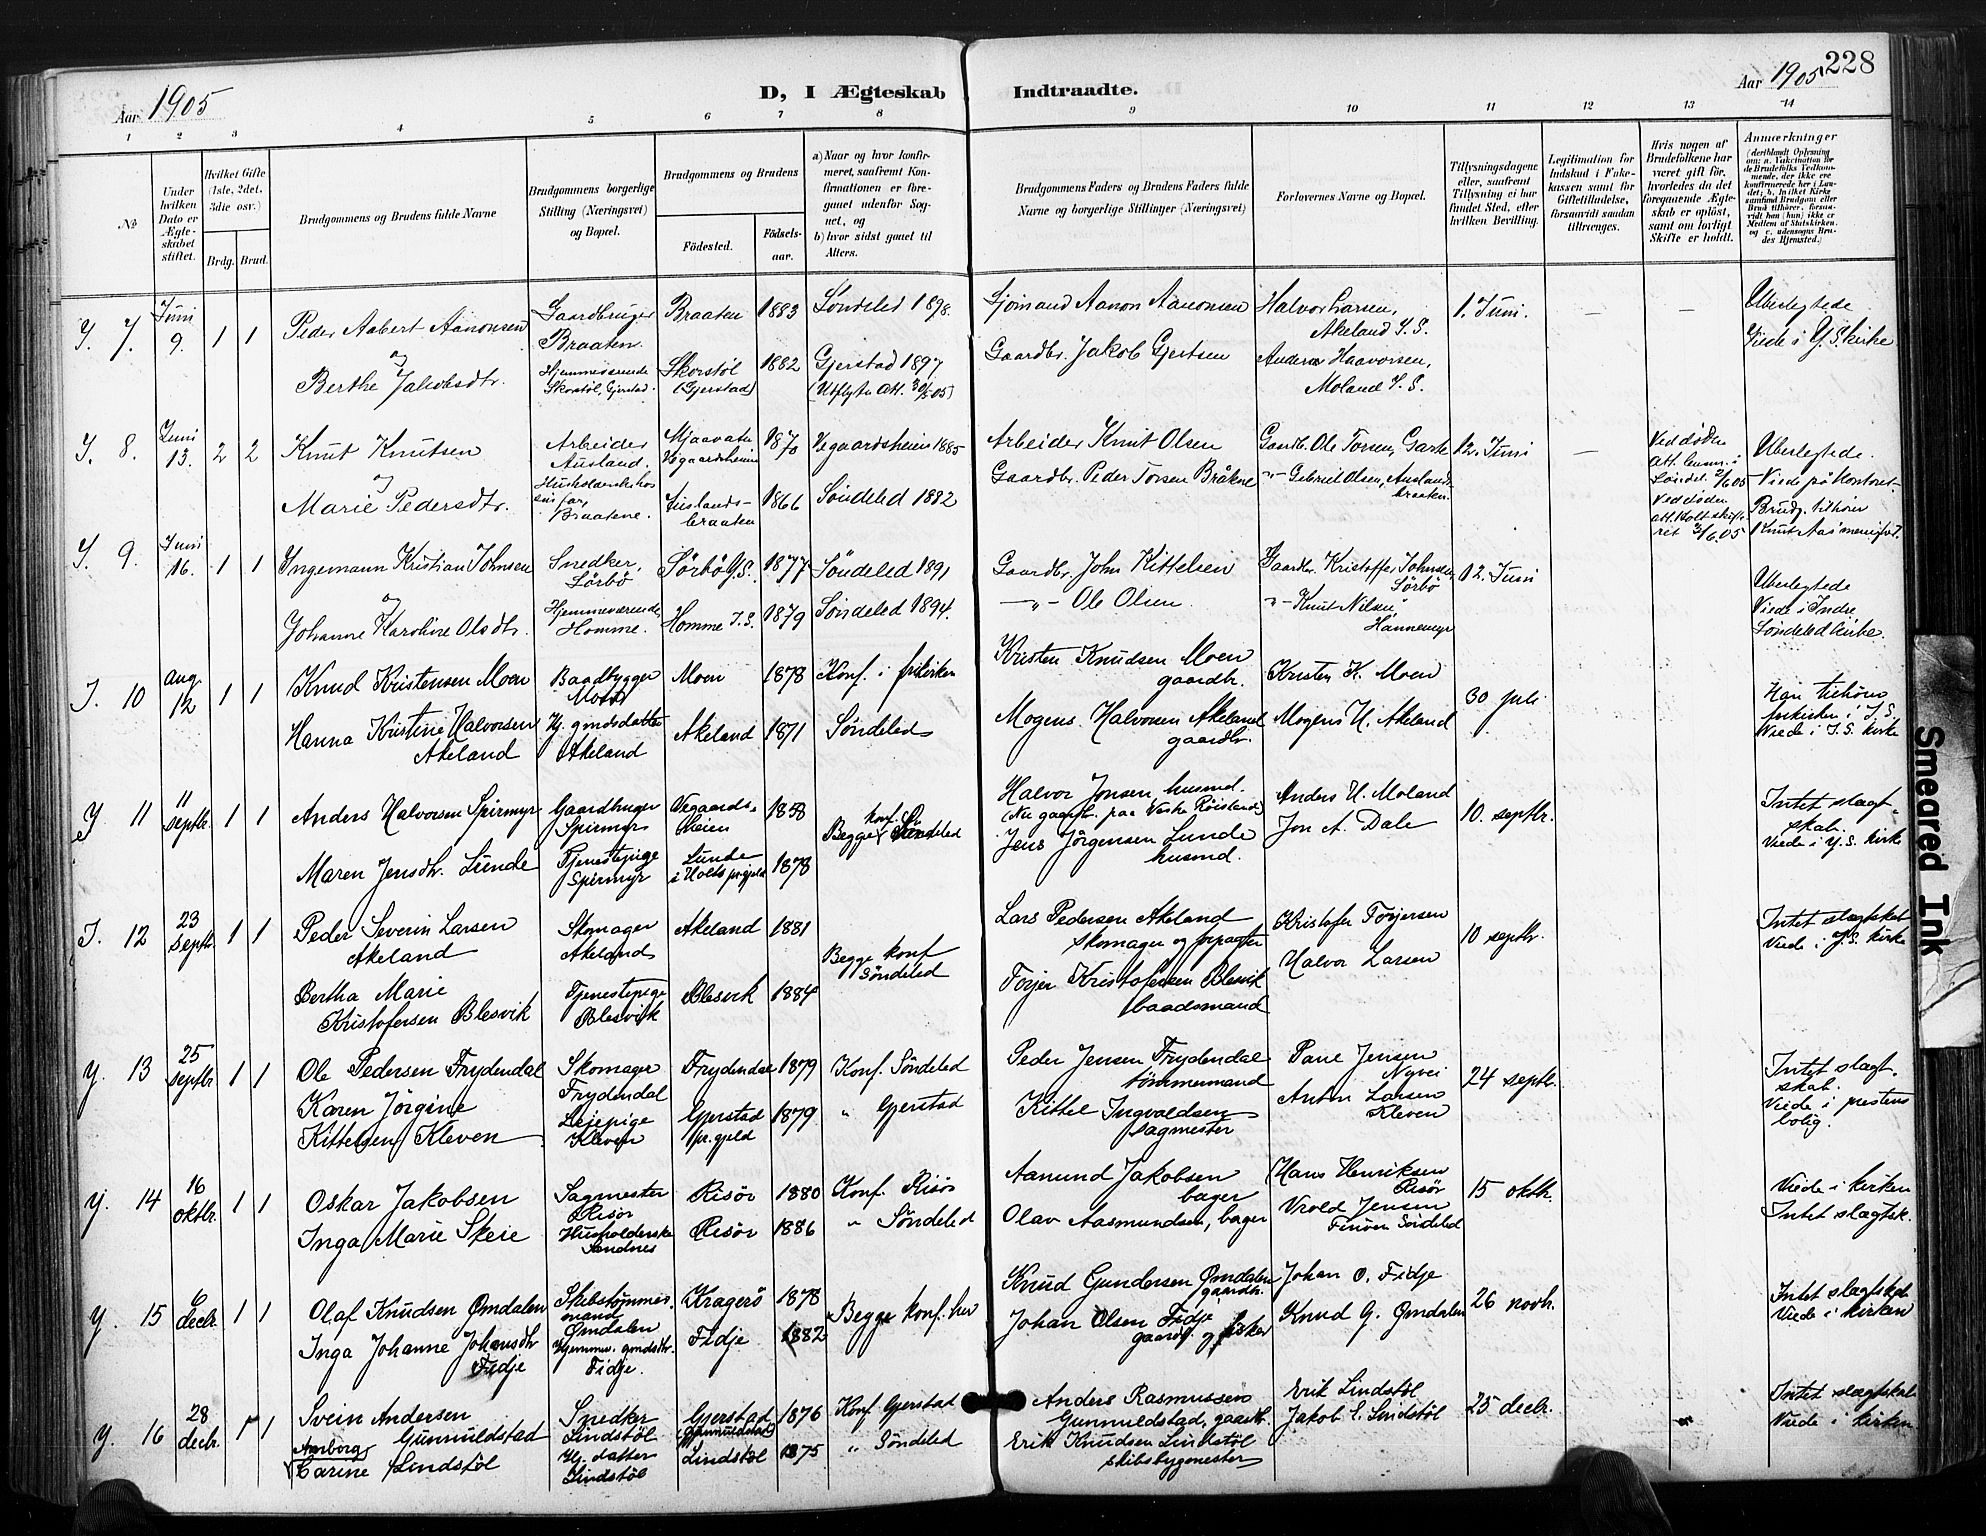 Aar 1905
D, I Ægteskab Indtraadte.
Aar 1905
228
1 2 3 4 5 6 7 8 9 10 11 12 13 14
No
Under hvilken Dato er Ægteskabet stiftet.
Hvilket Gifte (1ste, 2det, 3die osv.)
Brdg. Brud.
Brudgommens og Brudens fulde Navne
Brudgommens borgerlige Stilling (Næringsvei) og Bopæl.
Brudgommens og Brudens
Fødested.
Fødselsaar.
a) Naar og hvor konfirmeret, saafremt Konfirmationen er foregaaet udenfor Sognet, og
b) hvor sidst gaaet til Alters.
Brudgommens Faders og Brudens Faders fulde Navne og borgerlige Stillinger (Næringsvei)
Forlovernes Navne og Bopæl.
Tillysningsdagene eller, saafremt Tillysning ei har fundet Sted, efter hvilken Bevilling.
Legitimation for Indskud i Fakkassen samt for Giftetilladelse, forsaavidt saadan tiltrænges.
Hvis nogen af Brudefolkene har været gift før, hvorledes da det foregaaende Ægteskab er opløst, samt om lovligt Skifte er holdt.
Anmærkninger
(deriblandt Oplysning om: a. Vaksination for de Brudefolks Vedkommende, der ikke ere konfirmerede her i Landet; b. hvilket Kirkesamfund Brudgom eller Brud tilhører, forsaavidt han (hun) ikke er Medlem af Statskirken, og c. udensogns Brudes Hjemsted.)
Y. 7. Juni 9. 1 1
Peder Aabert Aanonsen
og
Berthe Jakobsdtr.
Gaardbruger
Braaten.
Hjemmeværende
Skorstøl, Gjerstad.
Braaten 1883
Skorstøl (Gjerstad) 1882
Søndeled 1898.
Gjerstad 1897
(Utflytn. Att. 30/5 05)
Sjømand Aanon Aanonsen
Gaardbr. Jakob Gjertsen
Halvor Larsen,
Akeland I. S.
Anders Haavorsen,
Moland Y. S.
1. Juni.
– –
Uberlegtede
Viede i Y. S. kirke
I. 8. Juni 13. 2 2
Knut Knutsen
og
Marie Pedersdtr.
Arbeider
Ausland.
Husholderske hos
sin far,
Braatene.
Mjaavatn
Vegaardsheien 1870
Auslands-
braaten 1866
Vegaardsheien 1885
Søndeled 1882
Arbeider Knut Olsen
Gaardbr. Peder Torsen Bråkne
Gaardb. Ole Torsen, Garte
–"– Gebriel Olsen, Ausland-
braaten.
12. Juni
–
Ved døden
Att.
Søndel. 2/6 05
Ved døden
att. Holt skifte-
ret 3/6 05
Uberlegtede.
Viede på Kontoret.
Brudg. tilhører
Knut Aas' menighet.
Y. 9. Juni 16. 1 1
Ingemann Kristian Johnsen
og
Johanne Karoline Olsdtr.
Snedker,
Sørbø
Hjemmeværende
Homme.
Sørbø Y.S. 1877
Homme I.S. 1879
Søndeled 1891
Søndeled 1894.
Gaardbr. John Kittelsen
–"– Ole Olsen.
Gaardbr. Kristoffer Johnsen,
Sørbø
"– Knut Nilsen,
Hannemyr
12. Juni
Uberlegtede
Viede i Indre
Søndeled kirke.
I. 10 aug. 12 1 1
Knud Kristensen Moen
Hanna Kristine Halvorsen
Akeland
Baadbygger
Moen
Hj. gmdsdatter
Akeland
Moen 1878
Akeland 1871
Konf. i frikirken
Søndeled
Kristen Knudsen Moen
gaardbr.
Mogens Halvorsen Akeland
gaardbr.
Kristen K. Moen
Mogens H. Akeland
30 juli
Han tilhører
frikirken i I. S.
Viede i I. S. kirke
Y 11 11 septbr. 1 1
Anders Halvorsen Spirmyr
Maren Jensdtr. Lunde
Gaardbruger
Spirmyr
Tjenestepige
Spirmyr
Vegaards-
heien 1858
Lunde
i Holts prgjeld 1878
Begge konf. Søndeled
Halvor Jonsen husmd.
(Nu gaardb. paa Vestre Røisland)
Jens Jörgensen Lunde
husmd.
Anders H. Moland
Jon A. Dale
10. septbr.
Intet slagt-
skab.
Viede i Y. S. kirke
I. 12 23 septbr. 1 1
Peder Severin Larsen
Akeland
Bertha Marie
Kristofersen Blesvik
Skomager
Akeland
Tjenestepige
Blesvik
Akeland 1881
Blesvik 1884
Begge konf
Søndeled
Lars Pedersen Akeland
skomager og forpagter
Torjer Kristofersen Blesvik
baadsmand
Kristofer Torjersen
Halvor Larsen
10 septbr.
Intet slagtskab
Viede i Y.S. kirke
Y. 13 25 septbr 1 1
Ole Pedersen Frydendal
Karen Jörgine
Kittelsen Kleven
Skomager
Frydendal
Leiepige
Kleven
Frydendal 1879
Gjerstad
pr.gjeld 1879
Konf. Søndeled
" Gjerstad
Peder Jensen Frydendal
tømmermand
Kittel Ingvaldsen
sagmester
Paul Jensen
Nyvei
Anton Larsen
Kleven
24 septbr.
Intet slagt-
skab.
Viede i prestens
bolig.
Y. 14 16 oktbr. 1 1
Oskar Jakobsen
Inga Marie Skeie
Sagmester
Risör
Husholderske
Sandnes
Risör 1880
Risör 1886
Konf. Risör
" Söndeled
Aanund Jakobsen
bager
Olav Aasmundsen, bager
Hans Henriksen
Risör
Vrold Jensen
Söndeled
15 oktbr.
Viede i kirken
Intet slagtsk.
Y. 15 6 decbr. 1 1
Olaf Knudsen Ømdalen
Inga Johanne Johansdtr
Fidje
Skibstømmer-
mand
Ømdalen
Hjemmev. gmdsdtr.
Fidje.
Kragerö 1878
Fidje 1882
Begge konf. her
Knud Gundersen Ømdalen
gaardbr.
Johan Olsen Fidje
gaardb. og fisker
Johan O. Fidje
Knud G. Ømdalen
26 novbr.
Intet slagtskab
Viede i kirken
Y. 16 28 decbr. 1 1
Svein Andersen
Gunnuldstad
Aasborg
Carine Lindstöl
Snedker
Lindstöl
Hj. datter
Lindstöl
Gjerstad
(Gunnuldstad) 1876
Lindstöl 1875
Konf Gjerstad
" Søndeled
Anders Rasmussen
Gunnuldstad, gaardb.
Erik Knudsen Lindstöl
skibsbygmester
Erik Lindstöl
Jakob E. Lindstöl
25 decbr.
Intet slagtskab
Viede i kirken
Smeared Ink